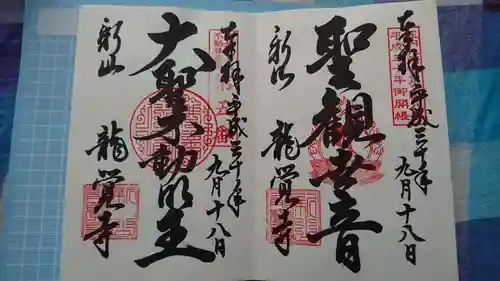 奉拝 平成三十年
九月十八日
平成三十年御開帳
聖観世音
新山 龍覚寺
奉拝 平成三十年
九月十八日
大聖不動明王
新山 龍覚寺